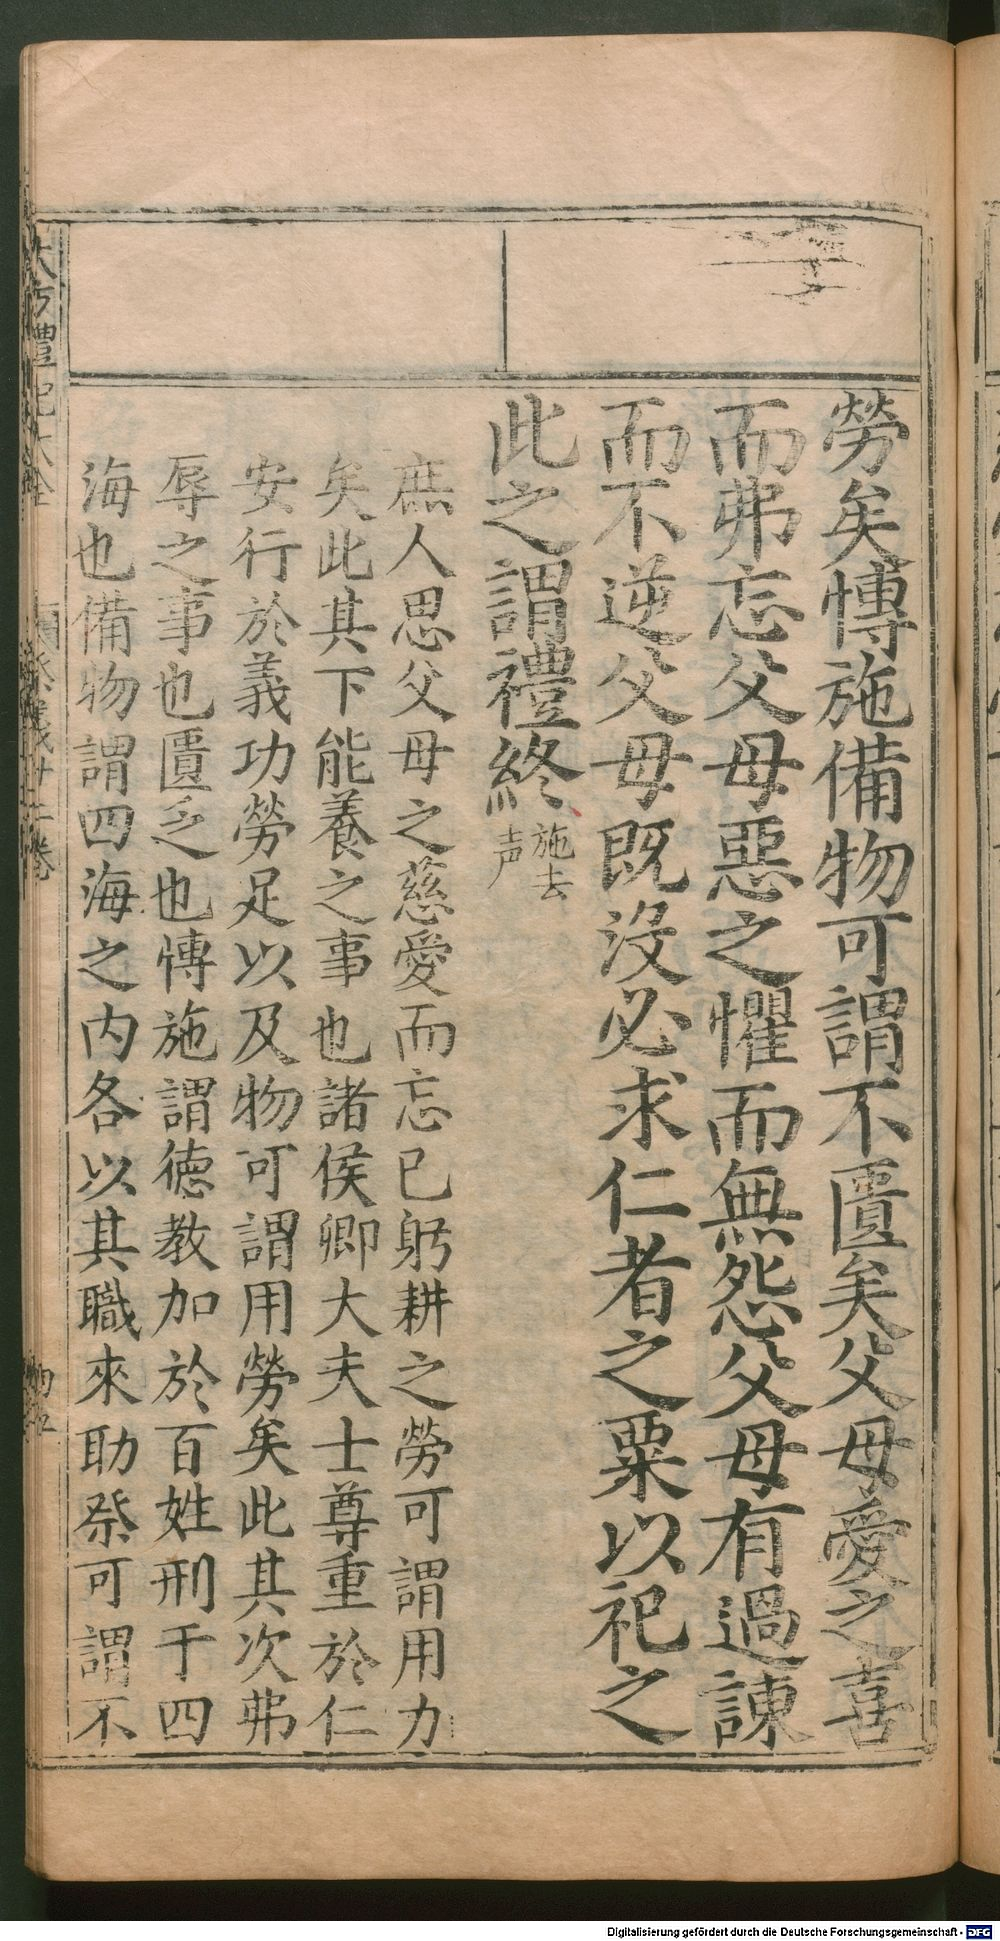 勞矣愽施備物可謂不匱矣父母愛之喜
而弗忘父母惡之懼而無怨父母有過諫
而不逆父母既沒必求仁者之粟以祀之
此之謂禮終施去声
庶人思父母之慈愛而忘已躬耕之勞可謂用力
矣此其下能養之事也諸侯卿大夫士尊重於仁
安行於義功勞足以及物可謂用勞矣此其次弗
辱之事也匱乏也愽施謂徳教加於百姓刑于四
海也備物謂四海之内各以其職來助祭可謂不
大方禮記大全
Digitalisierung gefördert durch die Deutsche Forschungsgemeinschaft - DFG